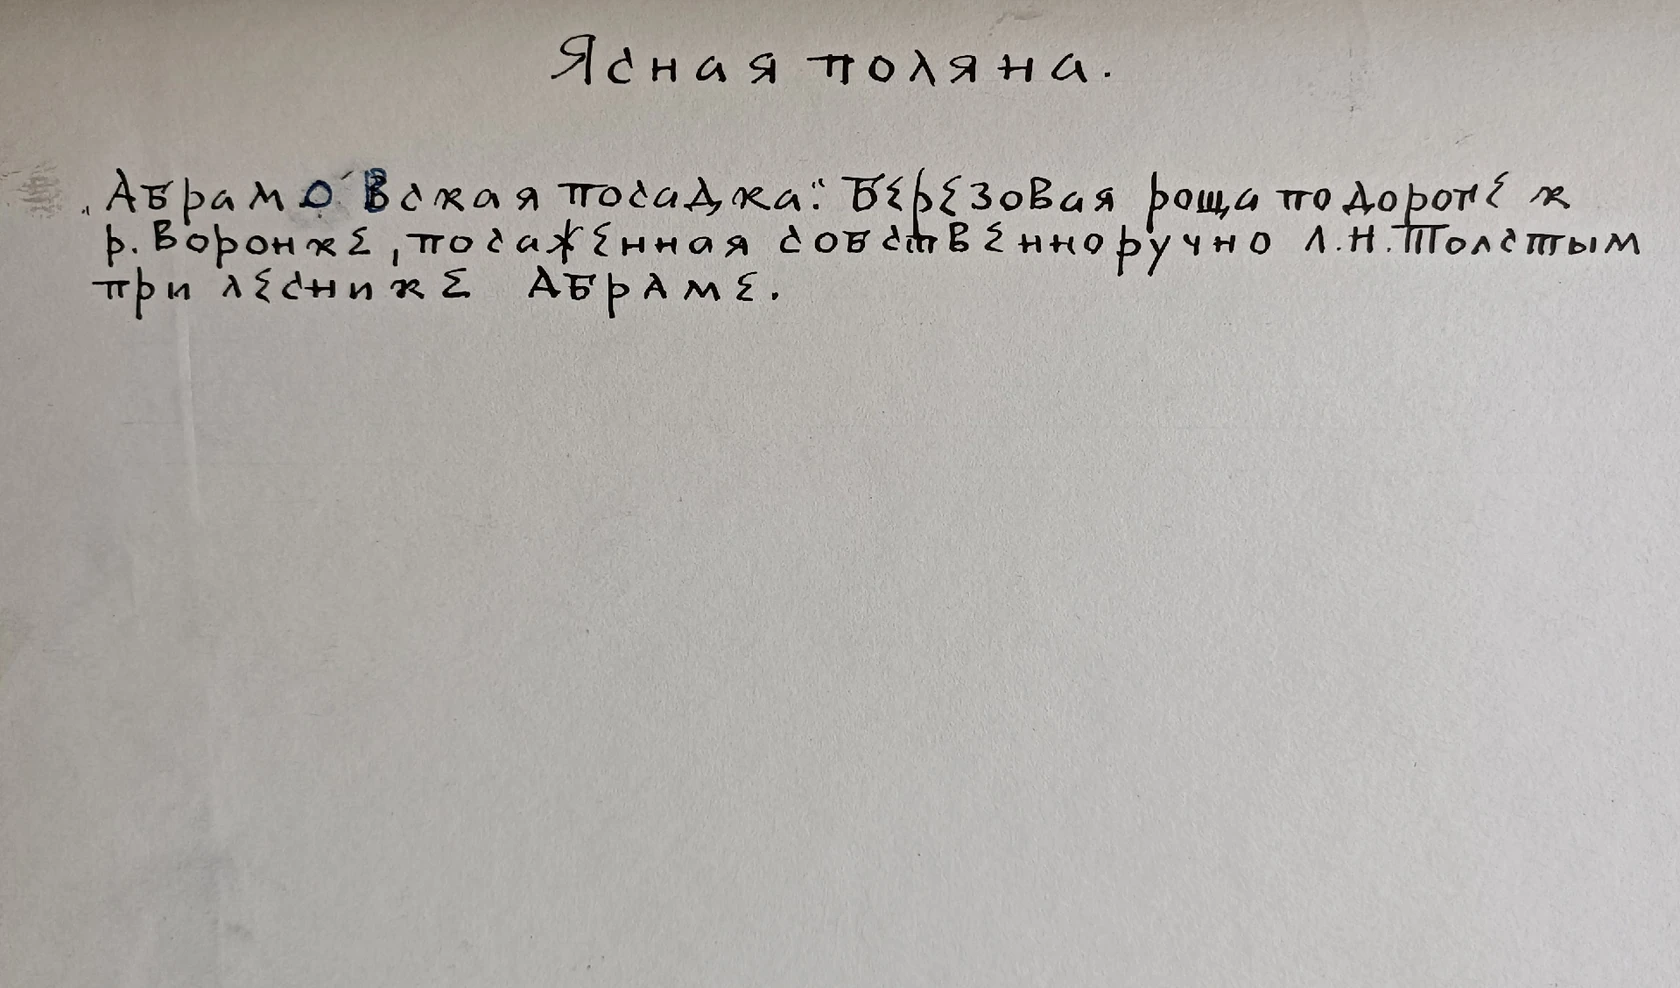 Ясная поляна.
„Абрамовская посадка“. Берёзовая роща по дороге к
р. Воронке, посаженная собственноручно Л.Н. Толстым
при леснике Абраме.